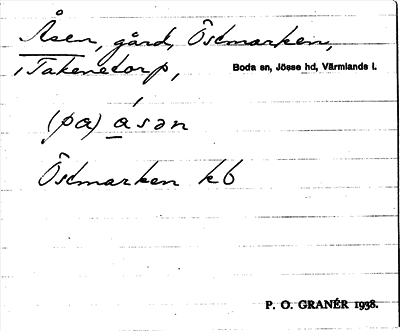 Åsen, gård, Östmarken,
i Takenetorp, Boda sn, Jösse hd, Värmlands l.
(pa) ásən
Östmarken k6
P. O. GRANÉR 1938.